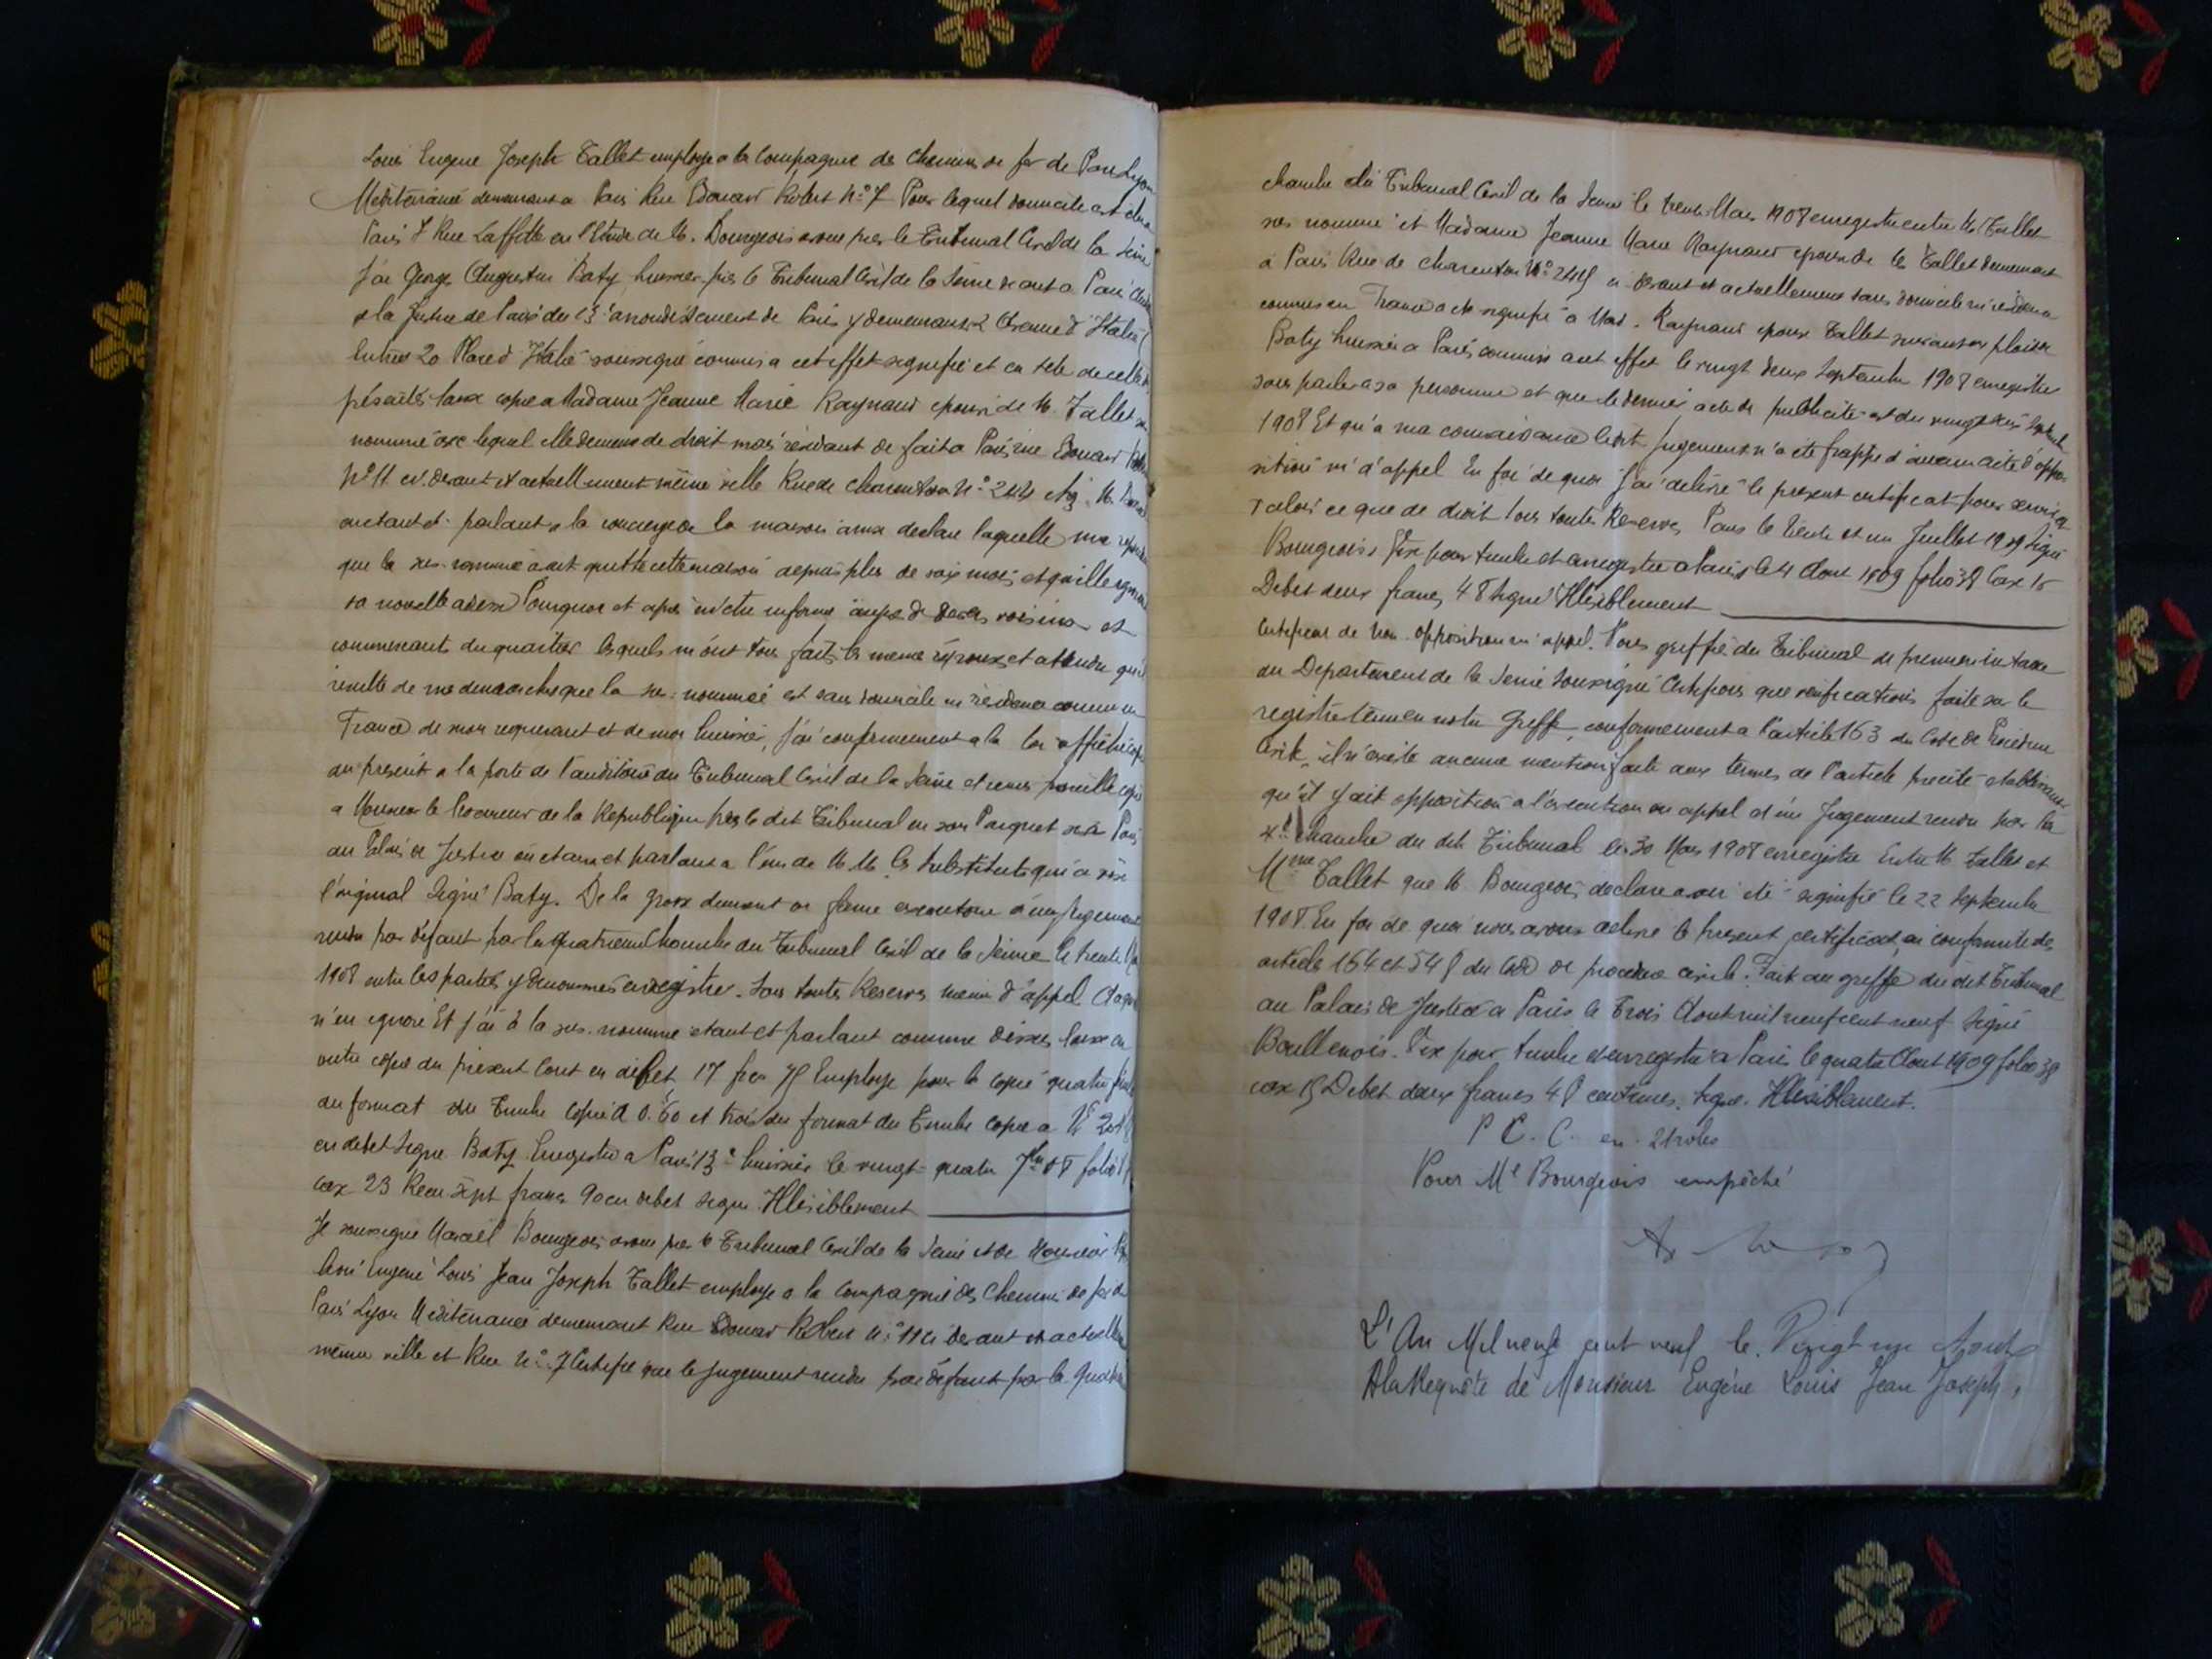 Louis Eugene Joseph Tallet employe a la Compagnie des Chemins de fer de Paris Lyon
Mediterranée demeurant a Paris Rue Edouard Robert N° 7 Pour lequel domicile est élu a
Paris 7 Rue Laffitte en l'Etude de M. Bourgeois avoue pres le Tribunal Civil de la Seine
J'ai Georges Augustin Baty huissier pres le Tribunal Civil de la Seine seant a Paris
a la Justice de Paix du 13e arrondissement de Paris y demeurant 2 Avenue d'Italie
Entrée 20 Place d'Italie soussigné commis a cet effet signifié et en tete de celle
présentes laissé copie a Madame Jeanne Marie Raynaud epouse de M. Tallet
nommé avec lequel elle demeure de droit mais résidant de fait a Paris rue Edouard
N° 11 ci-devant et actuellement même ville Rue de Charenton N° 244
ou etant et parlant a la concierge de la maison ainsi declare laquelle m'a
que la sus-nommée avait quitté cette maison depuis plus de six mois et qu'elle ignorait
sa nouvelle adresse Pourquoi et apres m'etre informé aupres de divers voisins et
commercants du quartier lesquels m'ont tous faits la meme réponse et attendu qu'il
résulte de mes demarches que la sus-nommée est sans domicile ni résidence connus en
France de mon requerant et de moi huissier, j'ai conformement a la loi affiché copie
du présent a la porte de l'auditoire du Tribunal Civil de la Seine et remis pareille copie
a Monsieur le Procureur de la Republique pres le dit Tribunal en son Parquet sis a Paris
au Palais de Justice ou etant et parlant a l'un de M.M. les Substituts qui a visé
l'original Signé Baty. De la grosse dument en forme executoire d'un Jugement
rendu par défaut par la quatrieme Chambre du Tribunal Civil de la Seine le trente
1908 entre les parties y denommées enregistre. Sous toutes Reserves meme d'appel.
n'en ignore Et j'ai a la sus-nommée etant et parlant comme dessus laissé
outre copie du présent Cout en débet 17 frcs 75 Employe pour la copie quatre
du format du Timbre Copie a 0.60 et trois du format du Timbre copie a
en debet Signe Baty Enregistre a Paris 13e huissier le vingt-quatre 7bre 08 folio
case 23 Recu sept francs 90 en debet Signe Illisiblement
Je soussigne Marcel Bourgeois avoue pres le Tribunal Civil de la Seine et de Monsieur
Eugene Louis Jean Joseph Tallet employe a la Compagnie des Chemins de fer de
Paris Lyon Mediterranée demeurant Rue Edouard Robert N° 11 ci-devant et actuellement
même ville et Rue N° 7 Certifie que le Jugement rendu par défaut par la Quatrieme
chambre du Tribunal Civil de la Seine le trente Mars 1908 enregistre entre M. Tallet
sus nommé et Madame Jeanne Marie Raynaud epouse de M. Tallet demeurant
a Paris Rue de Charenton N° 244 ci-devant et actuellement sans domicile ni résidence
connus en France a été signifié a Mad. Raynaud epouse Tallet suivant exploit de
Baty huissier a Paris commis a cet effet le vingt deux Septembre 1908 enregistre
sans parler a sa personne et que le dernier acte de publicité est du vingt Septembre
1908 Et qu'a ma connaissance ledit Jugement n'a ete frappé d'aucun acte d'oppo-
sition ni d'appel En foi de quoi j'ai delivré le présent certificat pour servir et
valoir ce que de droit Sous toutes Reserves Paris le trente et un Juillet 1909 Signé
Bourgeois Visé pour timbre et enregistre a Paris le 4 Aout 1909 folio 38 Case 15
Debet deux francs 48 Signé Illisiblement
Certificat de non-opposition ni appel. Nous greffier du Tribunal de premiere instance
du Departement de la Seine soussigné Certifions que vérifications faite sur le
registre tenu en notre Greffe, conformement a l'article 163 du Code de Procédure
Civile, il n'existe aucune mention faite aux termes de l'article précité etablissant
qu'il y ait opposition a l'execution ou appel d'un Jugement rendu par la
4e Chambre du dit Tribunal le 30 Mars 1908 enregistre Entre M Tallet et
Mme Tallet que M Bourgeois declare avoir été signifié le 22 Septembre
1908. En foi de quoi nous avons delivré le présent certificat en conformité des
articles 164 et 548 du Code de procedure civile. Fait au greffe du dit Tribunal
au Palais de Justice a Paris le Trois Aout mil neuf cent neuf Signé
Boullenois. Visé pour timbre et enregistré a Paris le quatre Aout 1909 folio 38
case 15 Debet deux francs 48 centimes. Signé. Illisiblement.
P C. C. en 2 roles
Pour Me Bourgeois empêché
L'An Mil neuf cent neuf le Vingt un Aout
A la Requête de Monsieur Eugène Louis Jean Joseph,